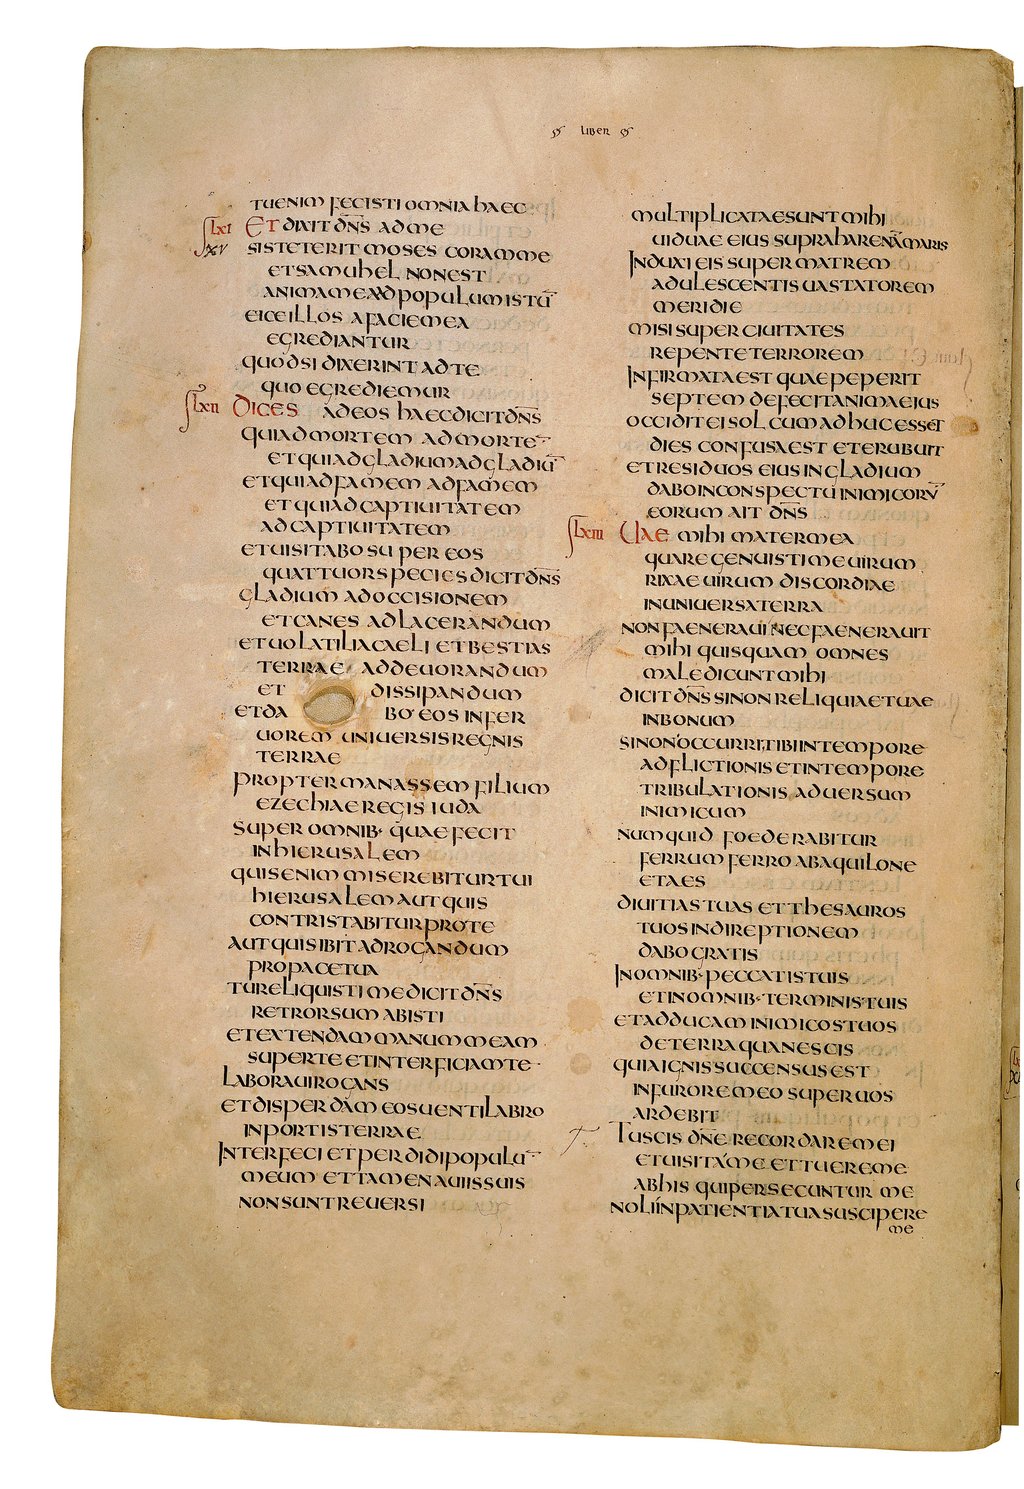 LIBER
tu enim fecisti omnia haec
lxi Et dixit dn̄s ad me
xv si steterit moses coram me
et samuhel non est
anima mea ad populum istū
eice illos a facie mea
egrediantur
quodsi dixerint ad te
quo egrediemur
lxii Dices ad eos haec dicit dn̄s
qui ad mortem ad morte¯
et qui ad gladium ad gladiū
et qui ad famem ad famem
et qui ad captiuitatem
ad captiuitatem
et uisitabo super eos
quattuor species dicit dn̄s
gladium ad occisionem
et canes ad lacerandum
et uolatilia caeli et bestias
terrae ad deuorandum
et dissipandum
et dabo eos in fer
uorem uniuersis regnis
terrae
propter manassem filium
ezechiae regis iuda
super omnib· quae fecit
in hierusalem
quis enim miserebitur tui
hierusalem aut quis
contristabitur pro te
aut quis ibit ad rogandum
pro pace tua
tu reliquisti me dicit dn̄s
retrorsum abisti
et extendam manum meam
super te et interficiam te
laboraui rogans
et dispergam eos uentilabro
in portis terrae
Interfeci et perdidi populū
meum et tamen a uiis suis
non sunt reuersi
multiplicatae sunt mihi
uiduae eius supra harenam maris
Induxi eis super matrem
adulescentis uastatorem
meridie
misi super ciuitates
repente terrorem
Infirmata est quae peperit
septem defecit anima eius
occidit ei sol cum adhuc esset
dies confusa est et erubuit
et residuos eius in gladium
dabo in conspectu inimicorū
eorum ait dn̄s
lxiii Uae mihi mater mea
quare genuisti me uirum
rixae uirum discordiae
in uniuersa terra
non faeneraui nec faenerauit
mihi quisquam omnes
maledicunt mihi
dicit dn̄s si non reliquiae tuae
in bonum
si non occurri tibi in tempore
adflictionis et in tempore
tribulationis aduersum
inimicum
numquid foederabitur
ferrum ferro ab aquilone
et aes
diuitias tuas et thesauros
tuos in direptionem
dabo gratis
In omnib· peccatis tuis
et in omnib· terminis tuis
et adducam inimicos tuos
de terra qua nescis
quia ignis succensus est
in furore meo super uos
ardebit
Tu scis dn̄e recordare mei
et uisita me et tuere me
ab his qui persecuntur me
noli in patientia tua suscipere
me